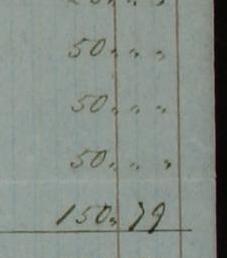 50 " "
50 " "
50 " "
150 " 79